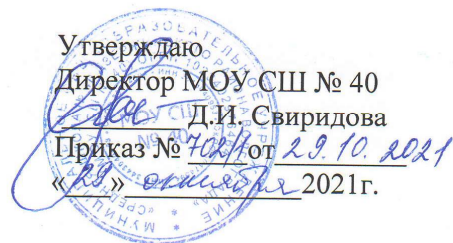 Утверждаю
Директор МОУ СШ № 40
Д.И. Свиридова
Приказ № 702/1 от 29.10.2021
«29» октября 2021г.